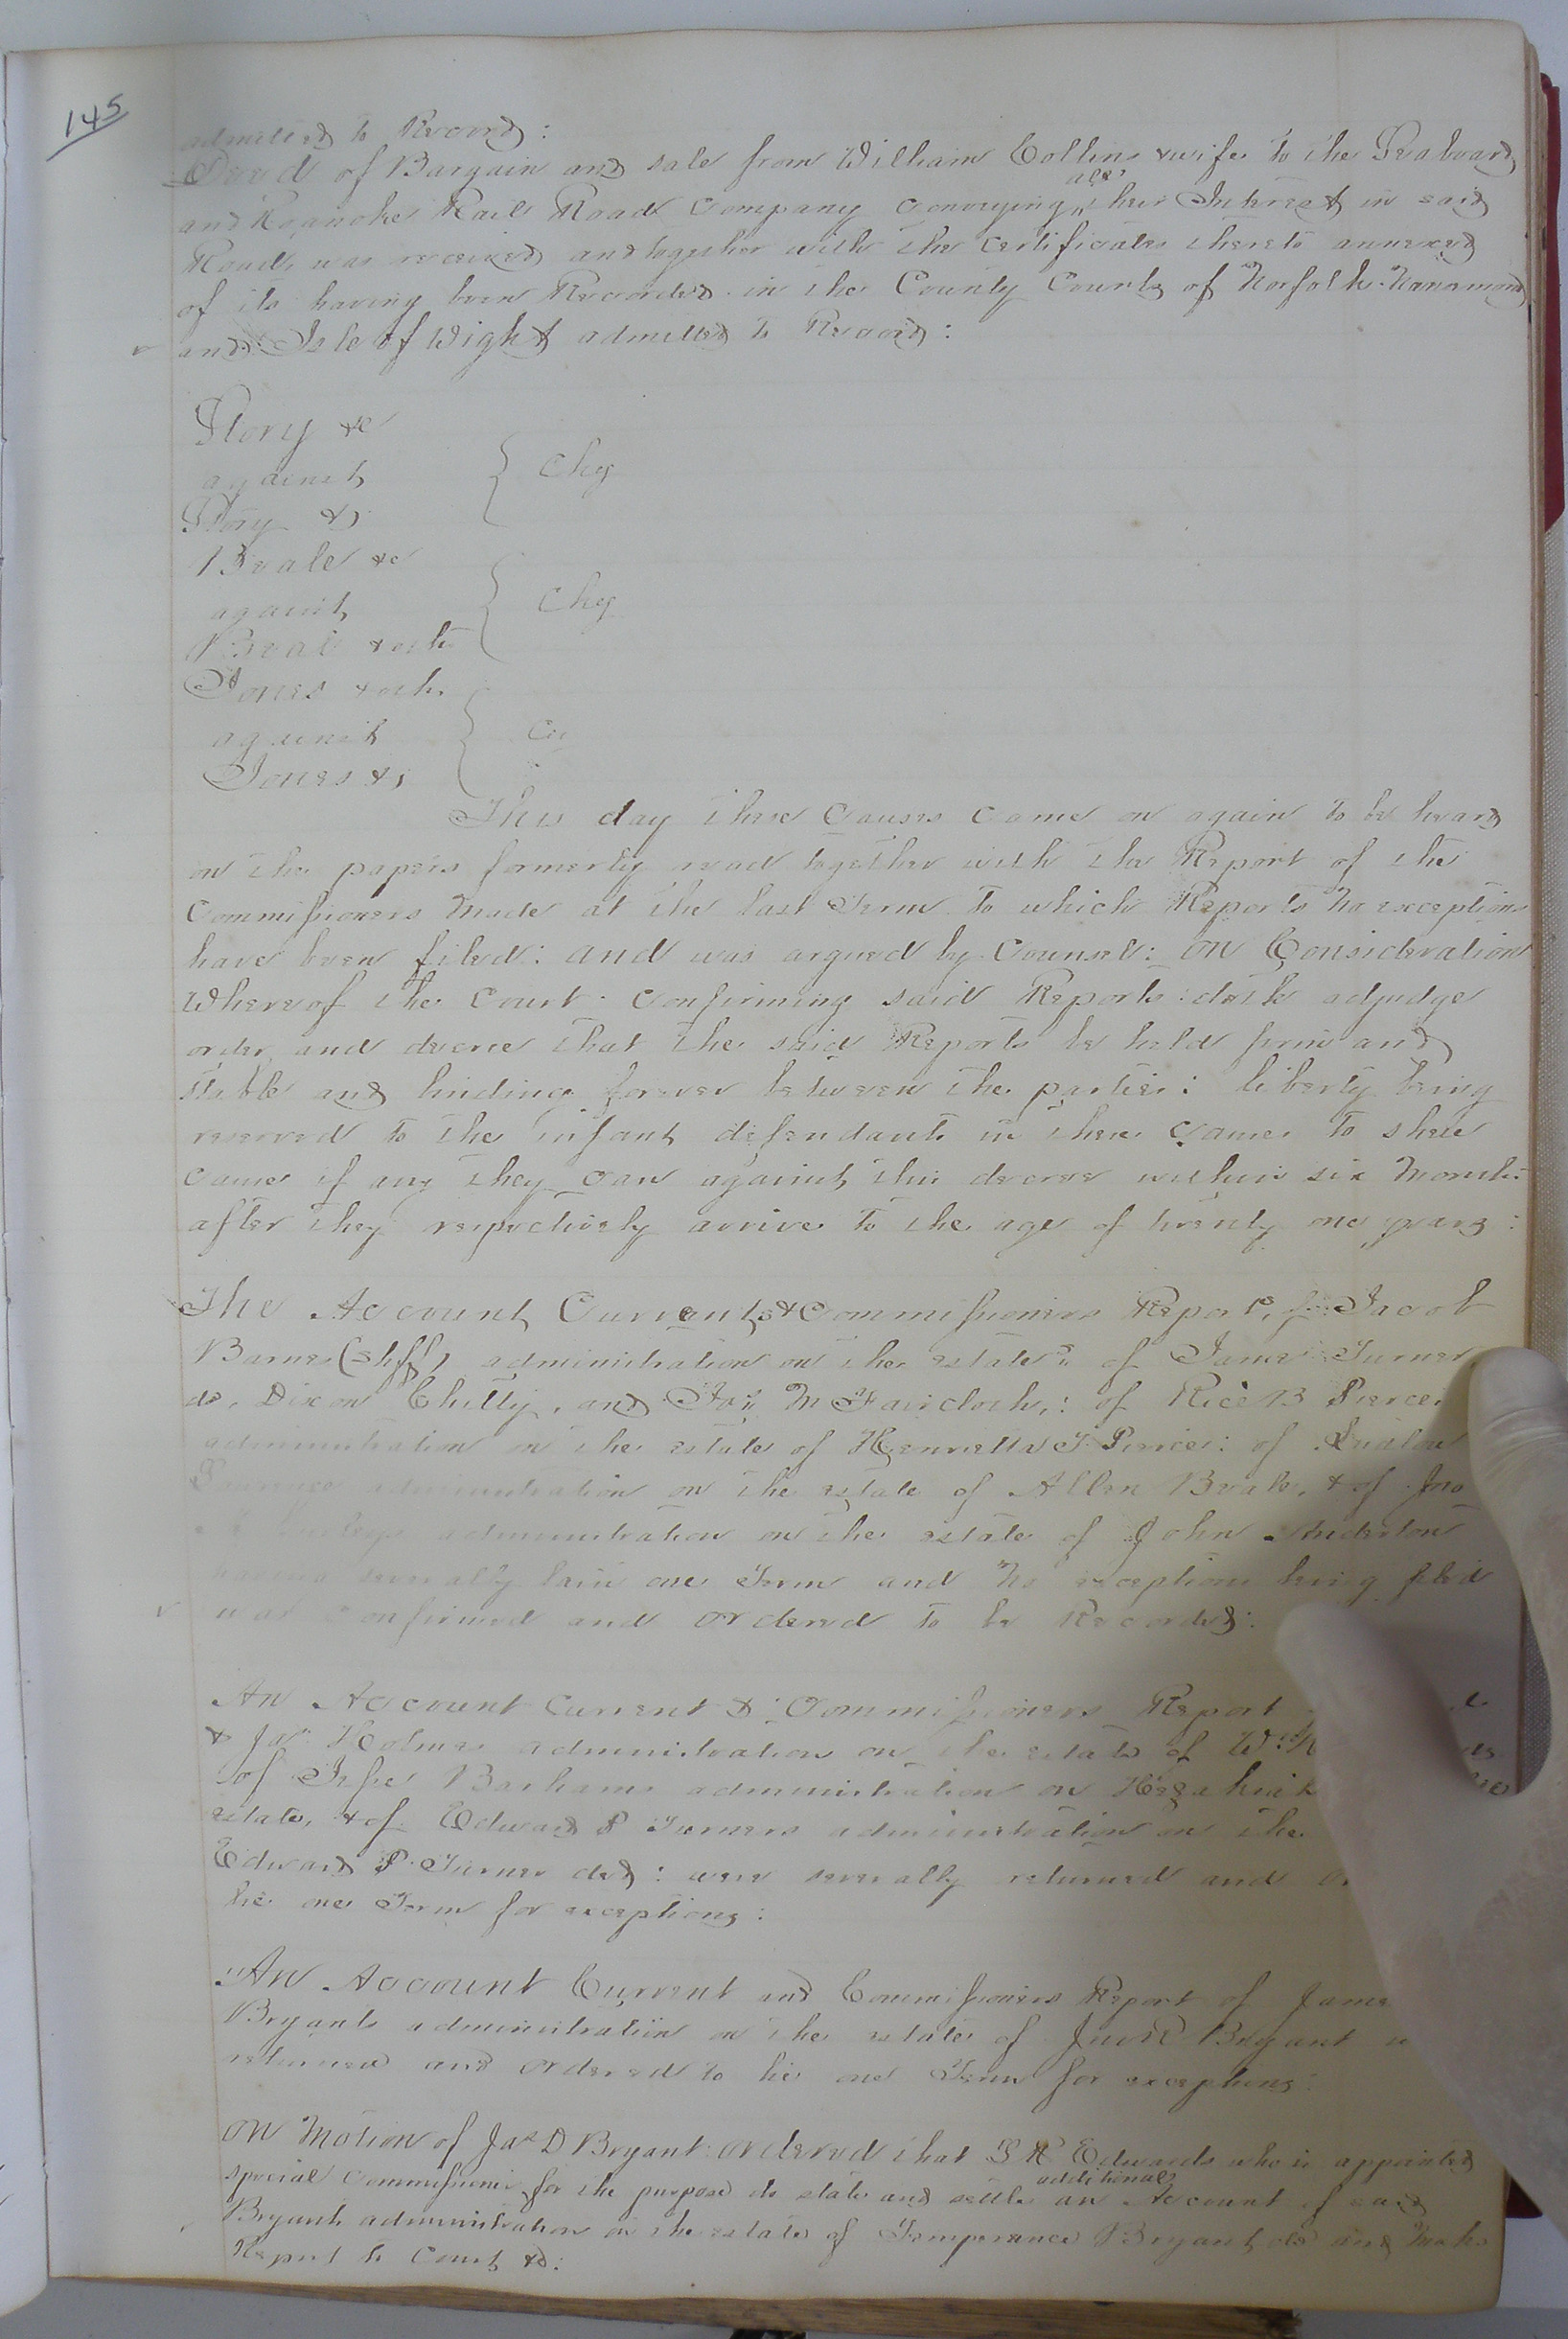 145
admitted to Record:
Deed of Bargain and sale from William Collins & wife to the Seaboard
and Roanoke Rail Road Company conveying all their Interest in said
Road, was received and together with the certificates thereto annexed
of its having been Recorded in the County Courts of Norfolk Nansemond
and Isle of Wight admitted to Record:
Story &c
against
Story &c
Beale &c
against
Beal & oth
Jones & oth.
against
Jones &c
Chy
Chy
This day these Causes came on again to be heard
on the papers formerly read together with the Report of the
Commissioners made at the last Term to which Reports no exceptions
have been filed: and was argued by Counsel: on Consideration
Whereof the Court confirming said Reports: doth adjudge
order and decree that the said Reports be held firm and
stable and binding forever between the parties: liberty being
reserved to the infant defendants in these causes to shew
cause if any they can against this decree within six Months
after they respectively arrive to the age of twenty one years:
The Account Current & Commissioners Report of Jacob
Barnes (Shff) administration on the estates of James Turner
de, Dixon Chitty, and M Faircloth,: of Rice B Pierce
administration on the estate of Henrietta Pierce: of
administration on the estate of Allen Beale, & of Jno
administration on the estate of John
severally lain one Term and no exceptions being filed
was confirmed and ordered to be Recorded:
An Account Current & Commissioners Report
& Jas Holmes administration on the estate of Wm
of Jesse Barhams administration on
estate, & of Edward P Turners administration on the
Edward P. Turner decd: were severally returned and
lie one Term for exceptions:
An Account Current and Commissioners Report of James
Bryants administration on the estate of Bryant
returned and ordered to lie one Term for exceptions:
On Motion of Jas D Bryant ordered that Edwards who is appointed
special commissioner for the purpose do state and settle an additional Account of said
Bryants administration on the estate of Temperance Bryant decd and Make
Report to Court &c: